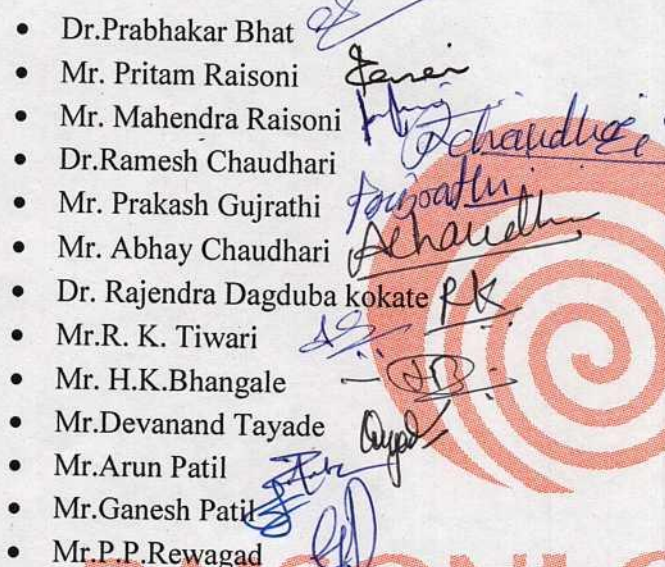 • Dr.Prabhakar Bhat
• Mr. Pritam Raisoni
• Mr. Mahendra Raisoni
• Dr.Ramesh Chaudhari
• Mr. Prakash Gujrathi
• Mr. Abhay Chaudhari
• Dr. Rajendra Dagduba kokate RK
• Mr.R. K. Tiwari
• Mr. H.K.Bhangale
• Mr.Devanand Tayade
• Mr.Arun Patil
• Mr.Ganesh Patil
• Mr.P.P.Rewagad